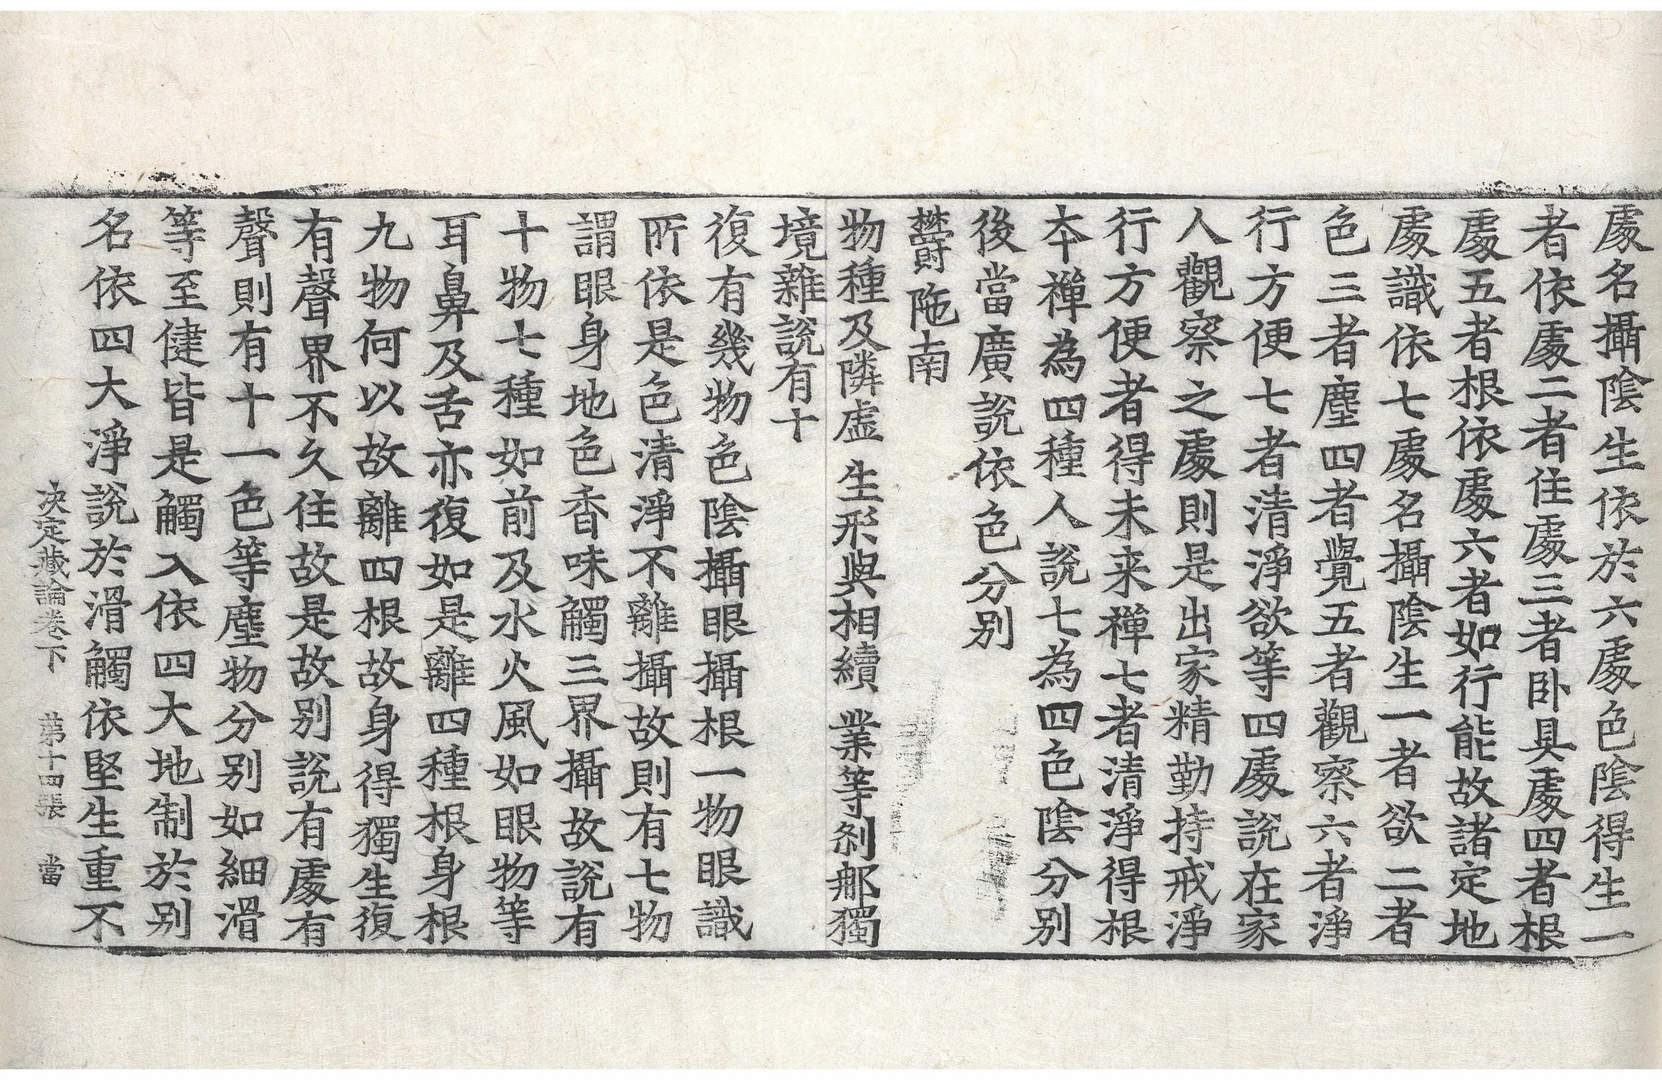 處名攝陰生依於六處色陰得生一
者依處二者住處三者卧具處四者根
處五者根依處六者如行能故諸定地
處識依七處名攝陰生一者欲二者
色三者塵四者覺五者觀察六者淨
行方便七者清淨欲等四處說在家
人觀察之處則是出家精勤持戒淨
行方便者得未来禪七者清淨得根
夲禪為四種人說七為四色陰分别
後當廣說依色分别
欝陁南
物種及隣虛 生形與相續 業等剎那獨
境雜說有十
復有幾物色陰攝眼攝根一物眼識
所依是色清淨不離攝故則有七物
謂眼身地色香味觸三界攝故說有
十物七種如前及水火風如眼物等
耳鼻及舌亦復如是離四種根身根
九物何以故離四根故身得獨生復
有聲界不久住故是故别說有處有
聲則有十一色等塵物分别如細滑
等至健皆是觸入依四大地制於别
名依四大淨說於滑觸依堅生重不
决定藏論卷下 第十四張 當